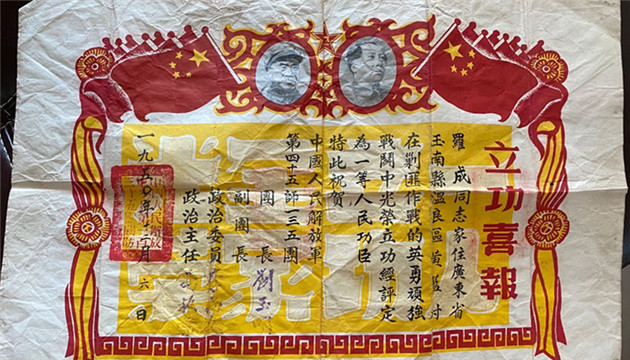 立功喜報
羅成同志家住廣東省
玉南縣溫良區黃藍村
在剿匪作戰的英勇頑強
戰鬪中光榮立功經評定
為一等人民功臣
特此祝賀
中國人民解放軍
第四十五師一三五團
團長 劉玉
副團長
政治委員
政治主任
一九五〇年十二月六日